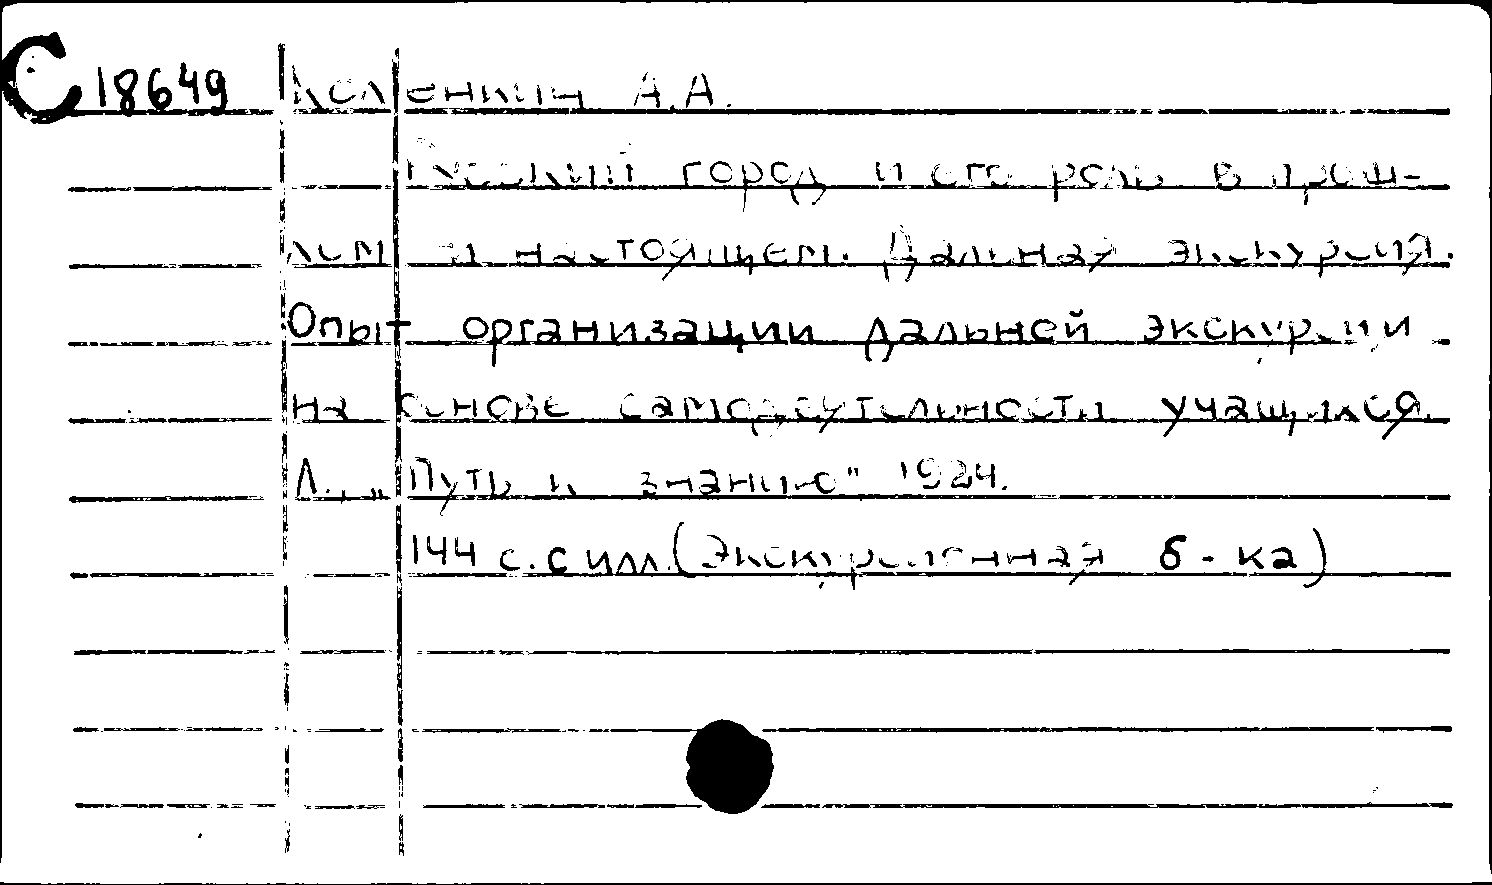 С 18649 Коленкин А.А.
Русский город и его роль в прош-
лом и настоящем. Дальная экскурсия.
Опыт организации дальней экскурсии
на основе самодеятельности учащихся.
Л., „Путь к знанию" 1924.
144 с. с илл. (Экскурсионная б-ка)